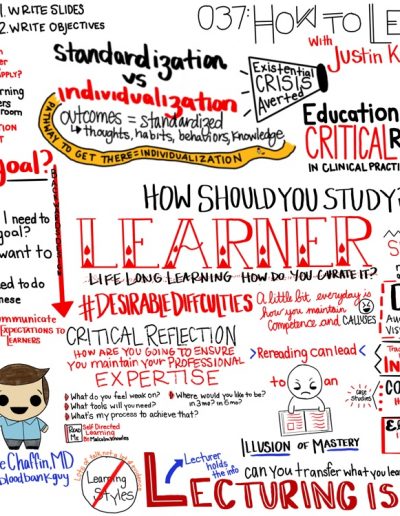 1. WRITE SLIDES
2. WRITE OBJECTIVES
037: HOW TO LE
WITH
JUSTIN K
Standardization
vs
individualization
outcomes = standardized
↳ thoughts, habits, behaviors, knowledge
PATHWAY TO GET THERE = INDIVIDUALIZATION
EXISTENTIAL
CRISIS
AVERTED
EDUCATION
CRITICAL R
IN CLINICAL PRACTI
APPLY?
rning
room
ION
goal?
I need to
goal?
want to
ed to do
nese
mmunicate
EXPECTATIONS TO
LEARNERS
HOW SHOULD YOU STUDY?
LEARNER
LIFE LONG LEARNING HOW DO YOU CURATE IT?
#DESIRABLE DIFFCULTIES
A little bit everyday is
how you maintain
Competence and CALLUSES
CRITICAL REFLECTION
HOW ARE YOU GOING TO ENSURE
You maintain your PROFESSIONAL
EXPERTISE
What do you feel weak on?
Where would you like to be?
in 3 mo? in 15 mo?
What tools will you need?
What's my process to achieve that?
READ
ME
Self Directed
Learning
By Malcolm Knowles
Rereading can lead
to
an
CASE
Studies
ILLUSION OF MASTERY
can you transfer what you lea
e Chaffin, MD
bloodbank.guy
Lots of talk, not a lot of evidence
Learning
Styles
Lecturer
holds
the info
LECTURING IS